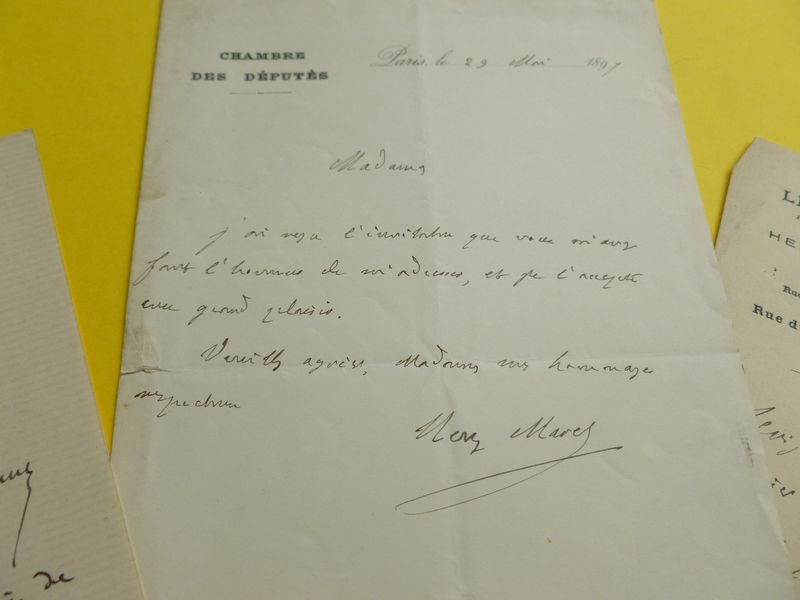 CHAMBRE
DES DÉPUTÉS
Paris, le 29 Mai 1897
Madame
j'ai reçu l'invitation que vous m'avez
fait l'honneur de m'adresser, et je l'accepte
avec grand plaisir.
Veuillez agréer, Madame, mes hommages
respectueux
Henry Maret
LE
HE
Rue
Rue d
de